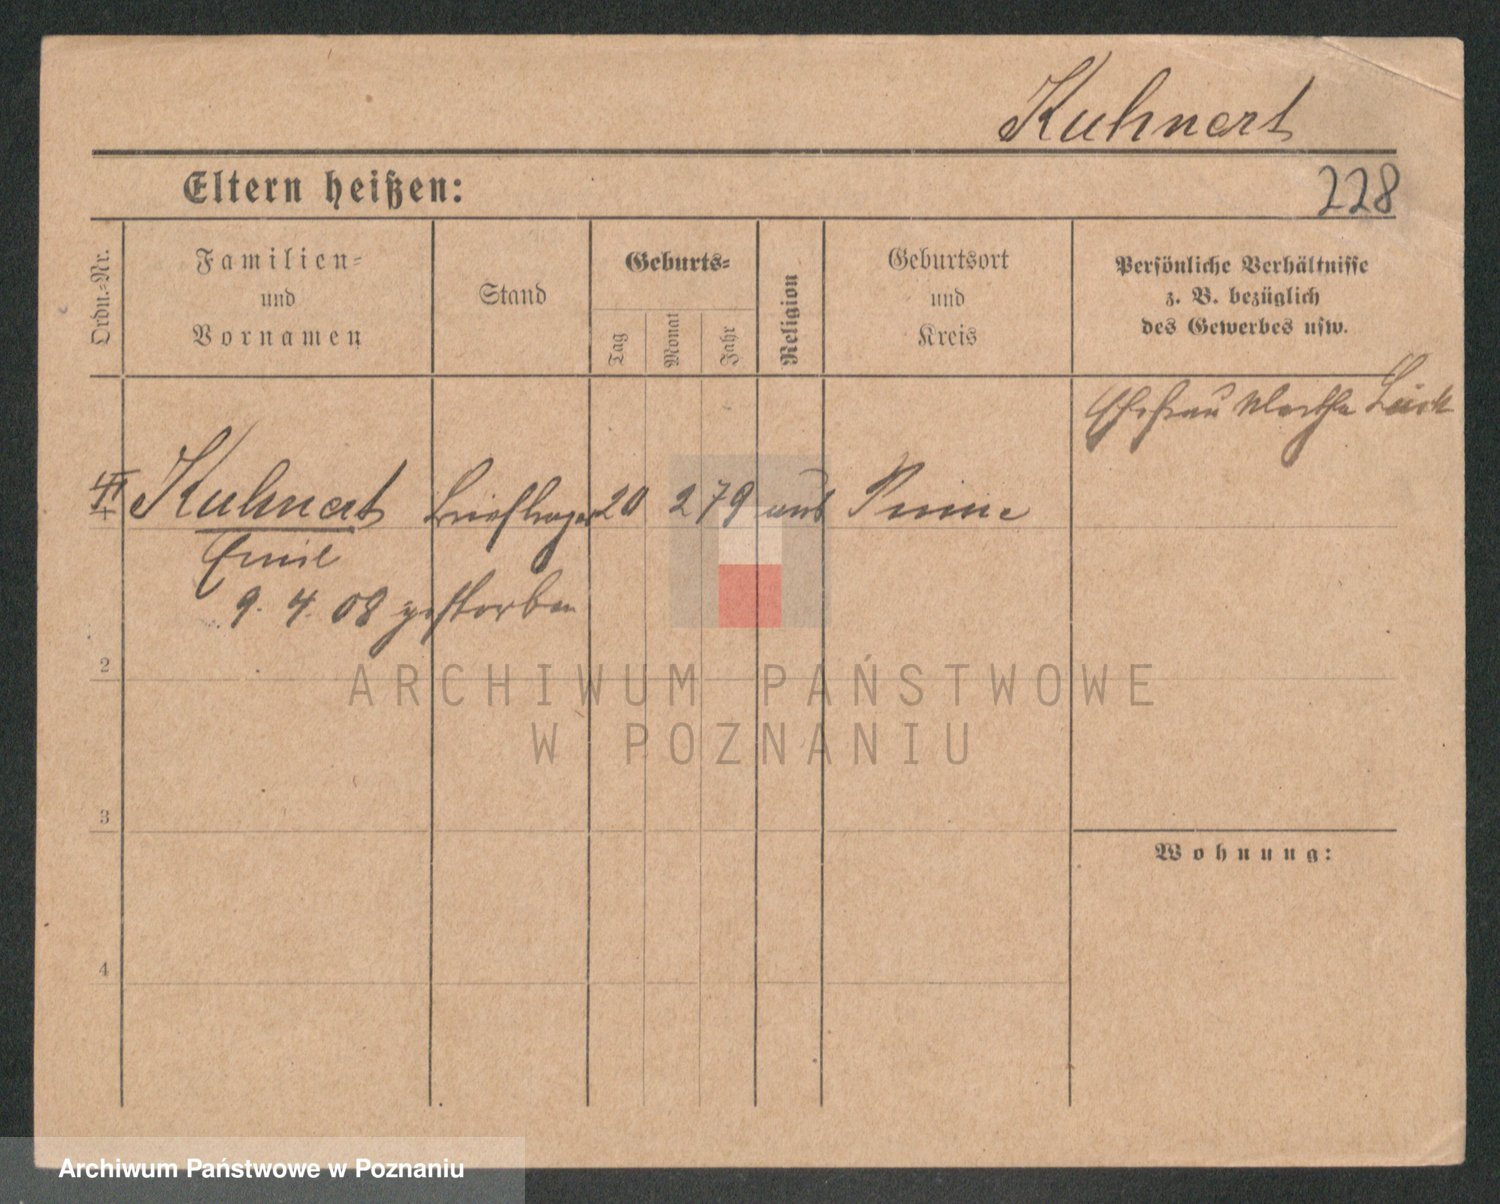 Kuhnert
Eltern heißen:
228
Ordn.-Nr.
Familien-
und
Vornamen
Stand
Geburts-
Tag
Monat
Jahr
Religion
Geburtsort
und
Kreis
Persönliche Verhältnisse
z. B. bezüglich
des Gewerbes usw.
Ehefrau Martha
Kuhnert Briefträger 20 2 79 Pinne
Emil
9. 4. 08 gestorben
2
ARCHIWUM PAŃSTWOWE
W POZNANIU
3
Wohnung:
4
Archiwum Państwowe w Poznaniu